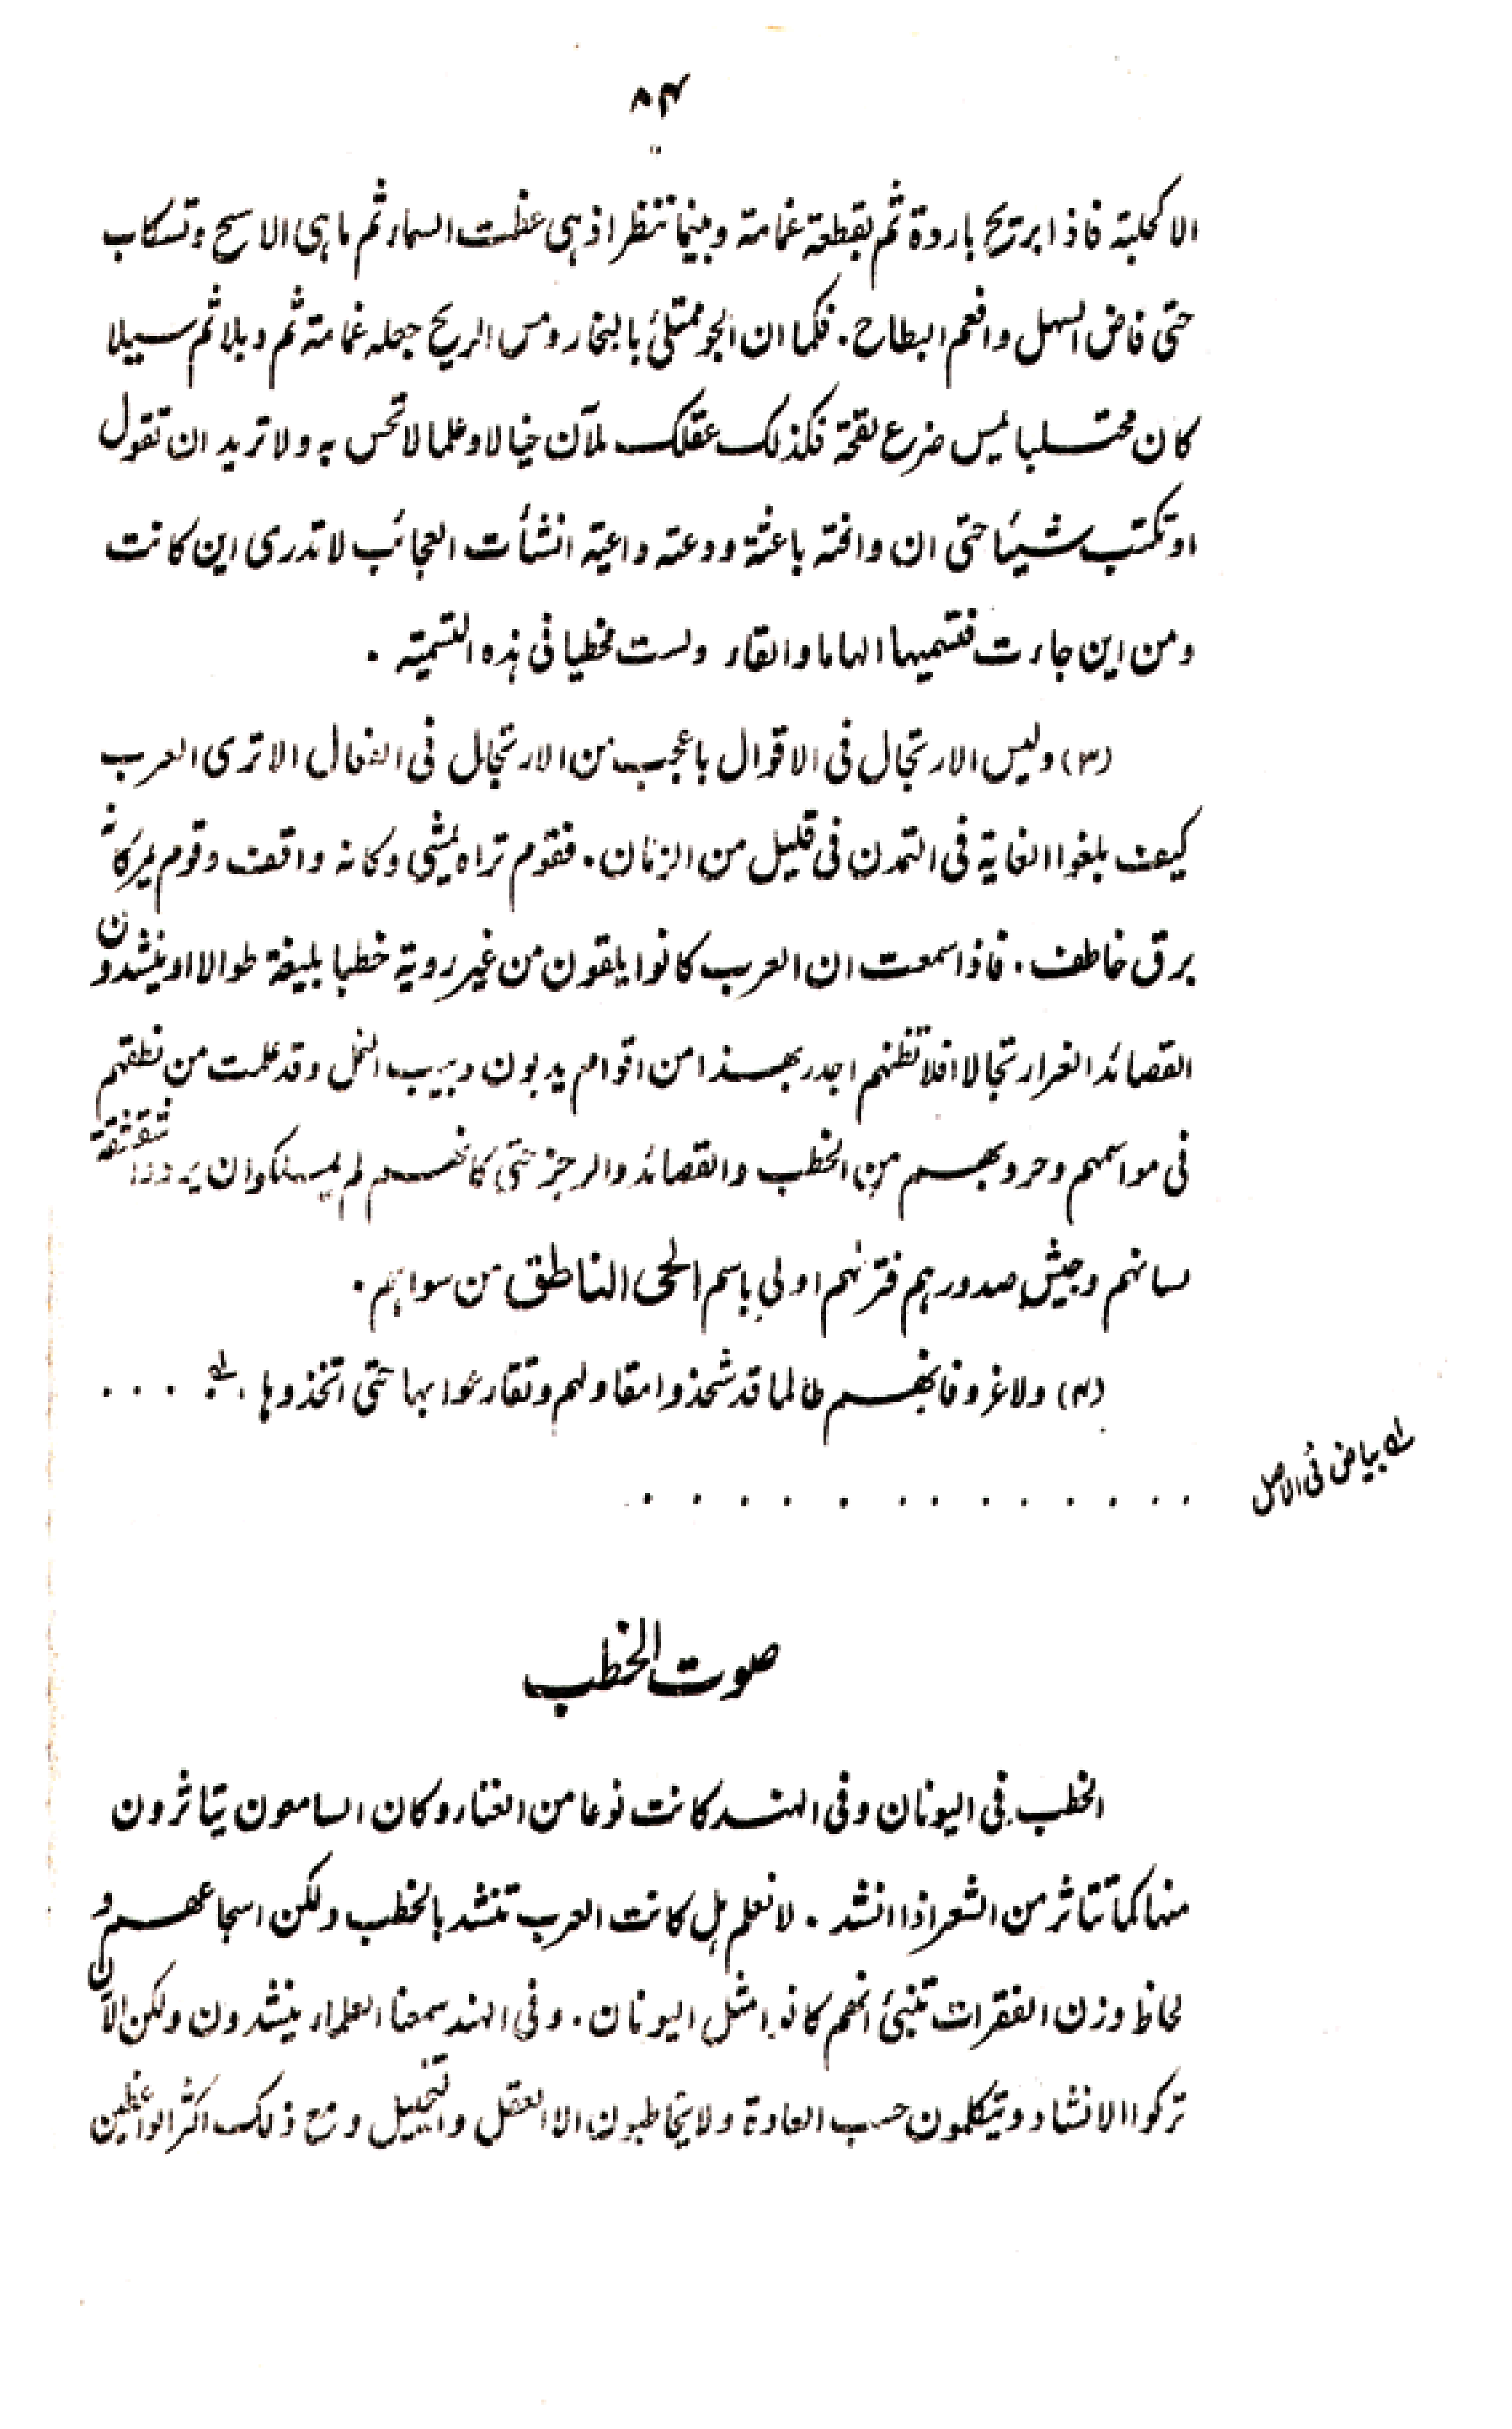 ٨٤
الا كحلبة فاذا بريح باردة ثم بقطعة غمامة وبينما تنظر اذ هى غطت السماء ثم ما هى الا سح وتسكاب
حتى فاض السهل وافعم البطاح. فكما ان الجو ممتلئ بالبخار ومس الريح جعله غمامة ثم وبلا ثم سيلا
كان محتلبا يمس ضرع لقحة فكذلك عقلك ملآن خيالا وعلما لا تحس به ولا تريد ان تقول
او تكتب شيئا حتى ان وافته باعثة ودعته داعية انشأت العجائب لا تدرى اين كانت
ومن اين جاءت فتسميها الهاما والقاء ولست مخطيا فى هذه التسمية.
(٣) وليس الارتجال فى الاقوال باعجب من الارتجال فى الفعال الا ترى العرب
كيف بلغوا الغاية فى التمدن فى قليل من الزمان. فقوم تراه يمشى وكانه واقف وقوم يمر كانه
برق خاطف. فاذا سمعت ان العرب كانوا يلقون من غير روية خطبا بليغة طوالا او ينشدون
القصائد الغر ارتجالا افلا تظنهم اجدر بهذا من اقوام يدبون دبيب النمل وقد علمت من نطقهم
فى مواسمهم وحروبهم من الخطب والقصائد والرجز حتى كانهم لم يملكوا ان يردوا شقشقة
لسانهم وجيش صدورهم فترنهم اولى باسم الحى الناطق من سواهم.
(٤) ولا غرو فانهم طالما قد شحذوا مقاولهم وتقارعوا بها حتى اتخذوها لـه . . . .
. . . . . . . . . . . . .
لـه بياض فى الاصل
صوت الخطب
الخطب فى اليونان وفى الهند كانت نوعا من الغناء وكان السامعون يتاثرون
منها كما تتاثر من الشعر اذا انشد. لا نعلم هل كانت العرب تنشد بالخطب ولكن اسجاعهم و
لحاظ وزن الفقرات تنبئ انهم كانوا مثل اليونان. وفى الهند سمعنا العلماء ينشدون ولكن الآن
تركوا الانشاد ويتكلمون حسب العادة ولا يخاطبون الا العقل والتخييل ومع ذلك اكثر الواعظين